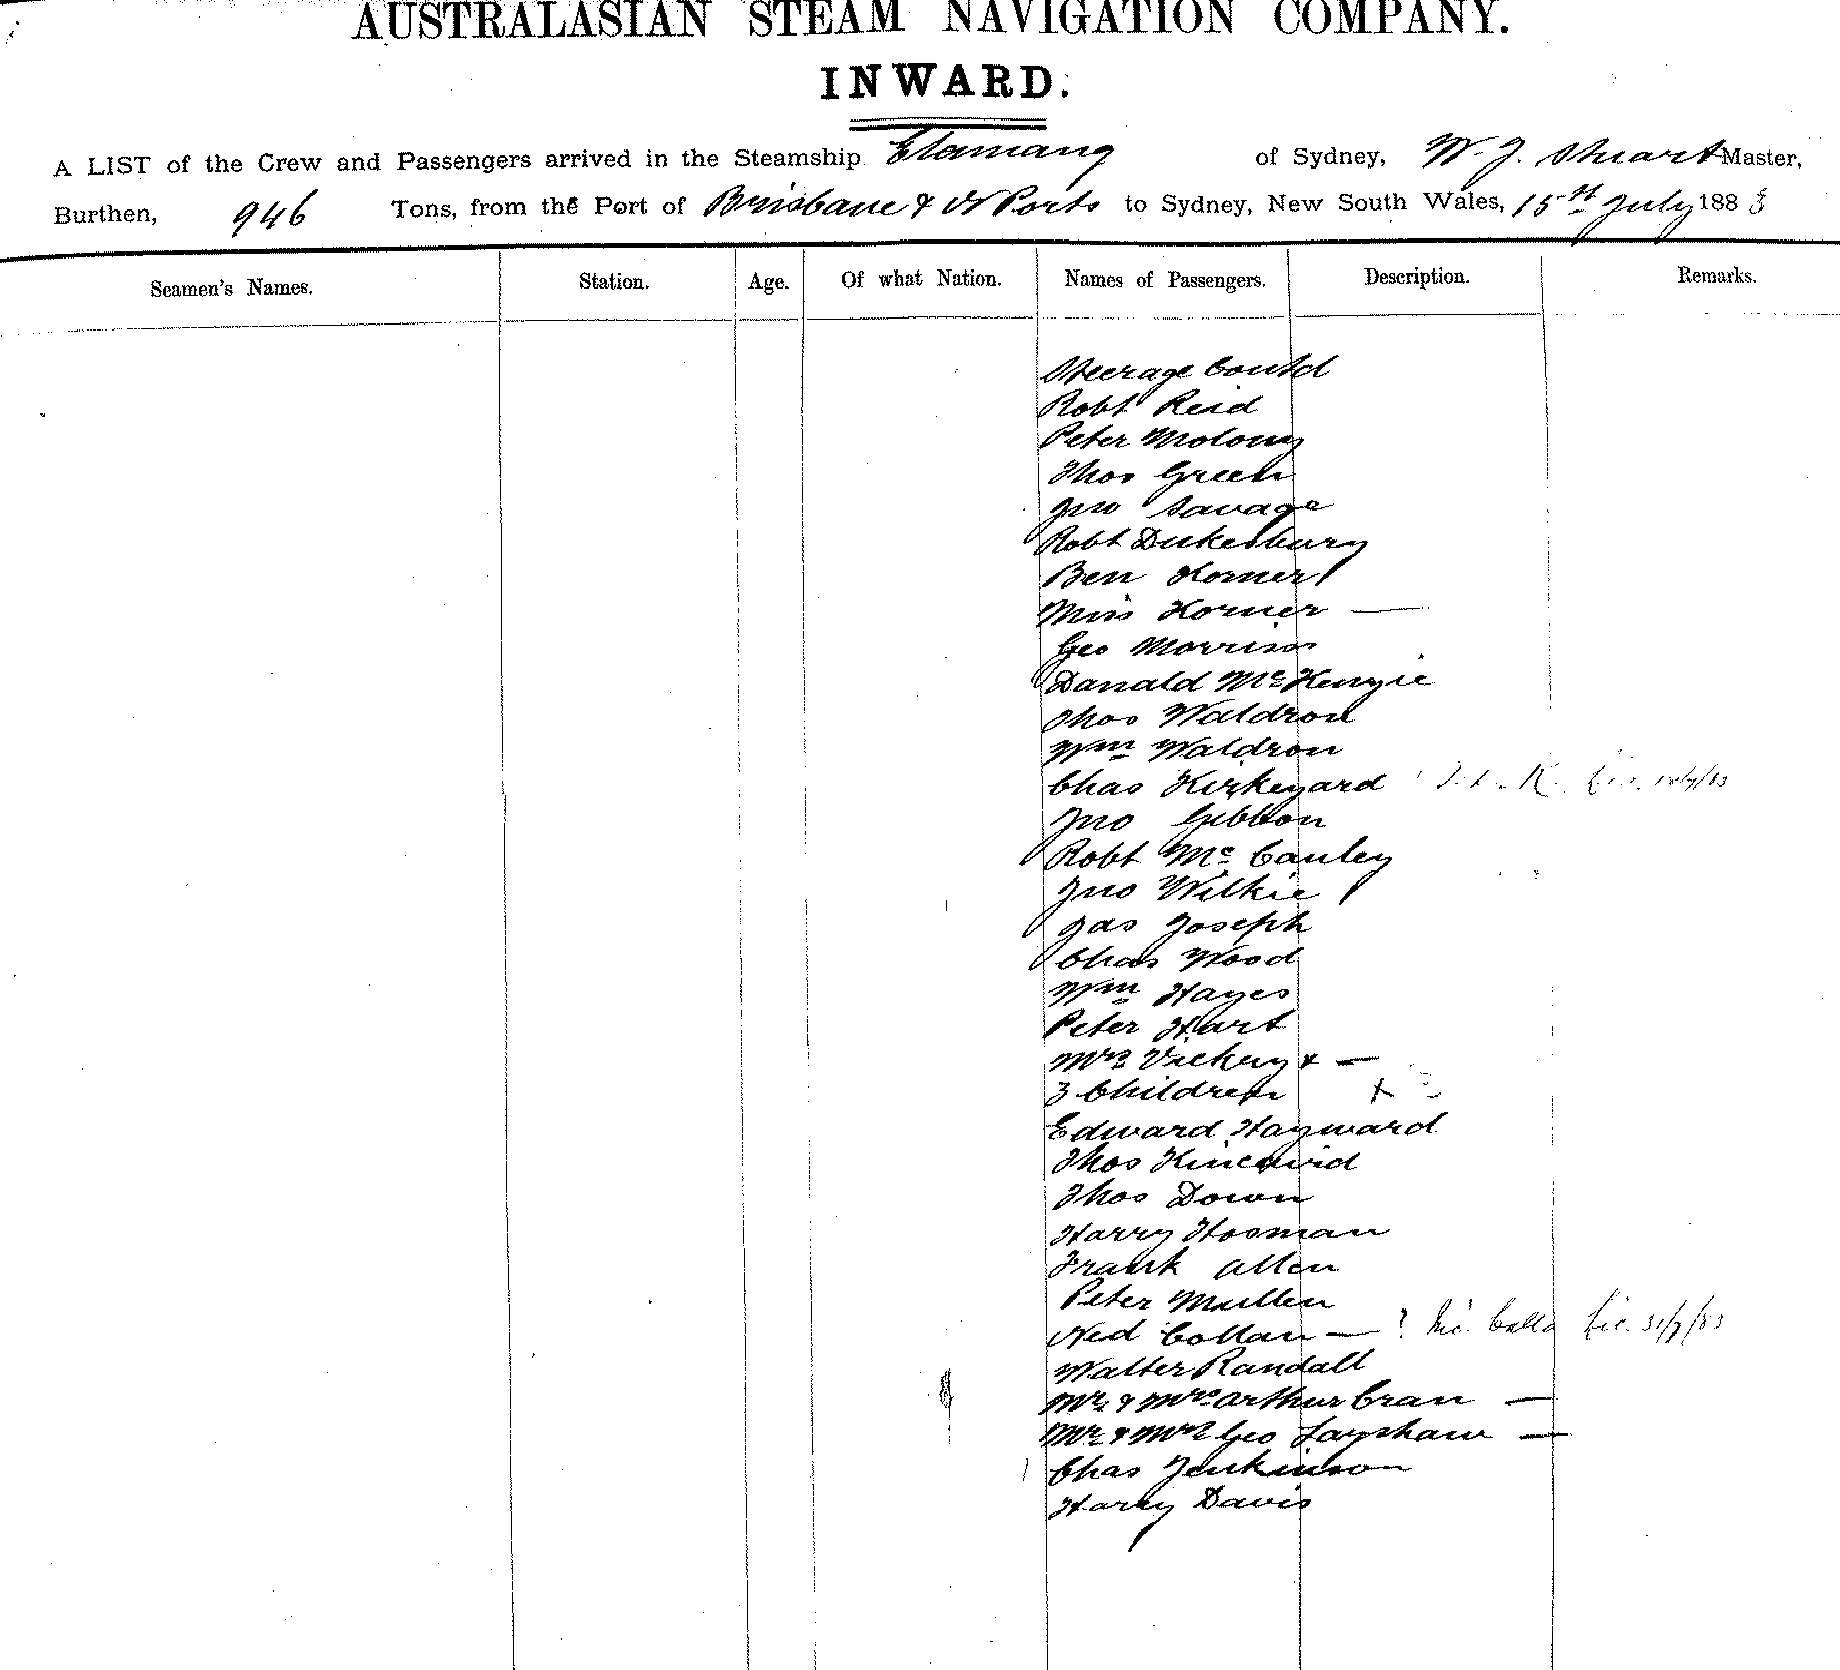 AUSTRALASIAN STEAM NAVIGATION COMPANY.
INWARD.
A LIST of the Crew and Passengers arrived in the Steamship Elamang of Sydney, W. J. Stuart Master,
Burthen, 946 Tons, from the Port of Brisbane & N Ports to Sydney, New South Wales, 15th July 1883
Seamen's Names. Station. Age. Of what Nation. Names of Passengers. Description. Remarks.
Steerage Contd
Robt Reid
Peter Molony
Thos Green
Jno Savage
Robt Dukesbury
Ben Horner
Miss Horner —
Geo Morrison
Donald McKenzie
Thos Waldron
Wm Waldron
Chas Kirkeyard
Jno Gibbon
Robt McCauley
Jno Wilkie
Jas Joseph
Chas Wood
Wm Hayes
Peter Hart
Mrs Vickery & —
3 Children x
Edward Hayward
Thos Kincaird
Thos Down
Harry Hosman
Frank Allen
Peter Mullen
Ned Collan — ?
Walter Randall
Mr & Mrs Arthur Cran —
Mr & Mrs Geo Layshaw —
Chas Jenkinson
Harry Davis